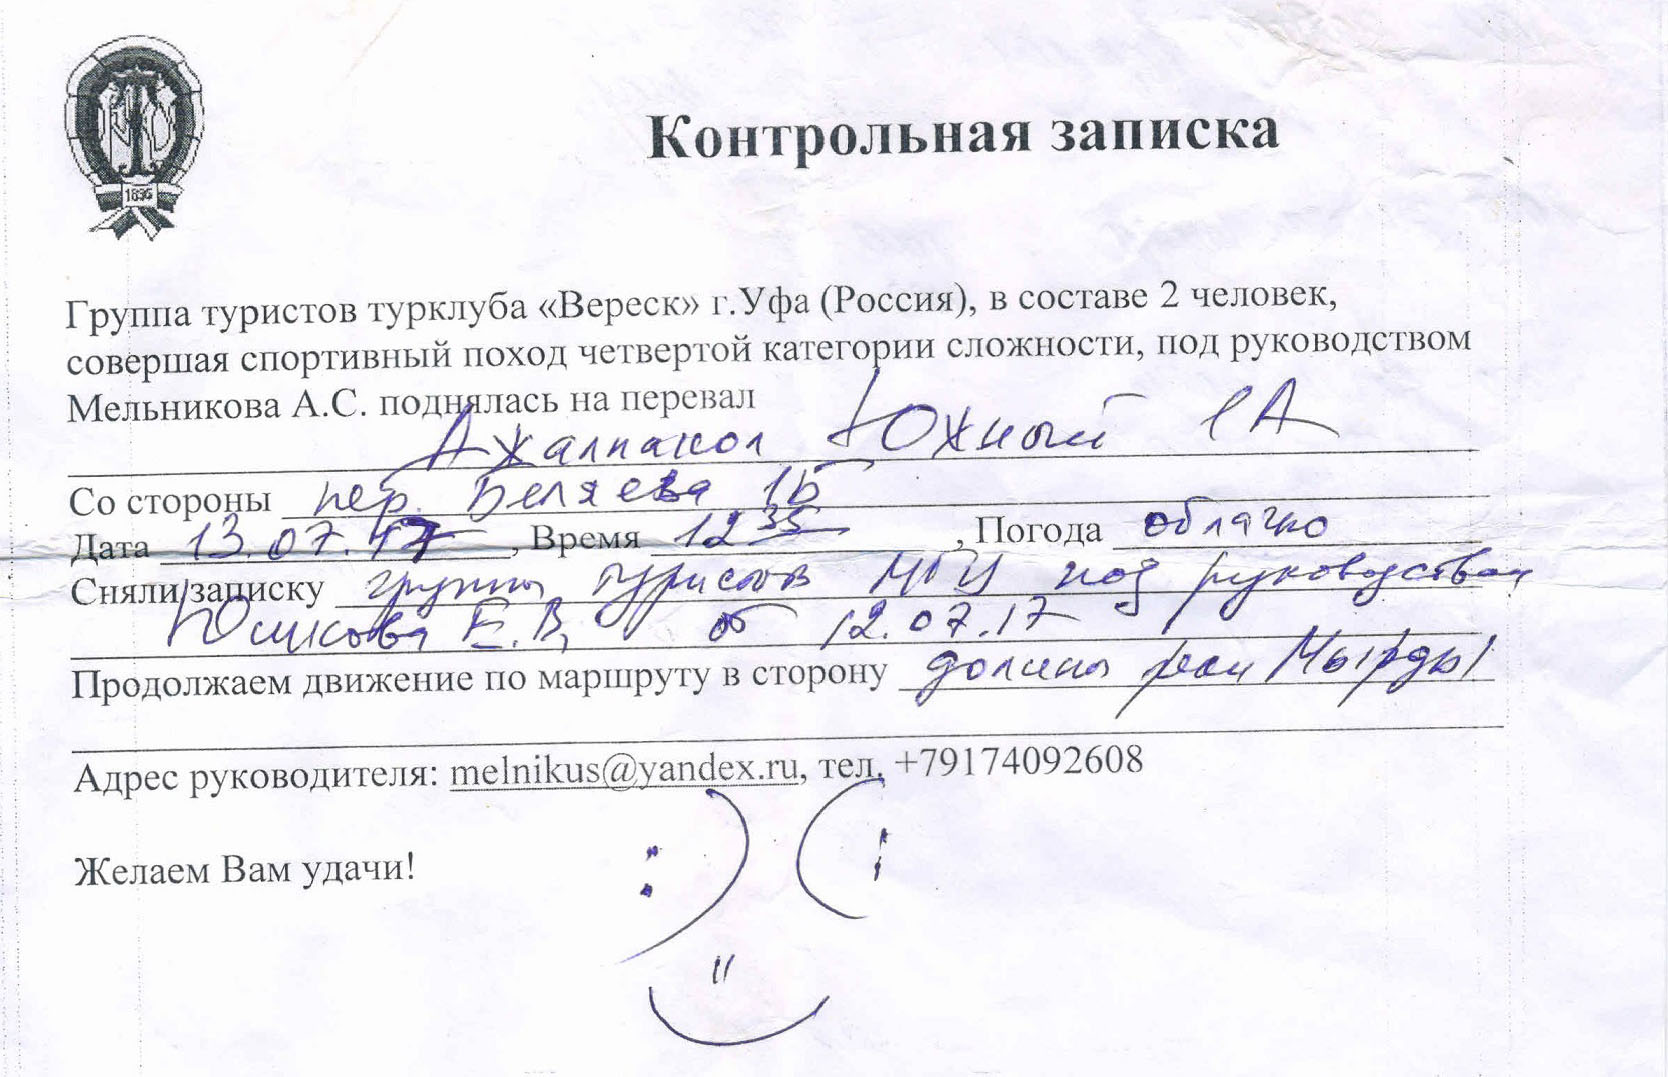 1895
Контрольная записка
Группа туристов турклуба «Вереск» г.Уфа (Россия), в составе 2 человек,
совершая спортивный поход четвертой категории сложности, под руководством
Мельникова А.С. поднялась на перевал
Джалпакол Южный 1А
Со стороны пер. Беляева 1Б
Дата 13.07.17, Время 12 35, Погода облачно
Сняли записку группы туристов МГУ под руководством
Е.В. от 12.07.17
Продолжаем движение по маршруту в сторону долины реки Мырды
Адрес руководителя: melnikus@yandex.ru, тел. +79174092608
Желаем Вам удачи!